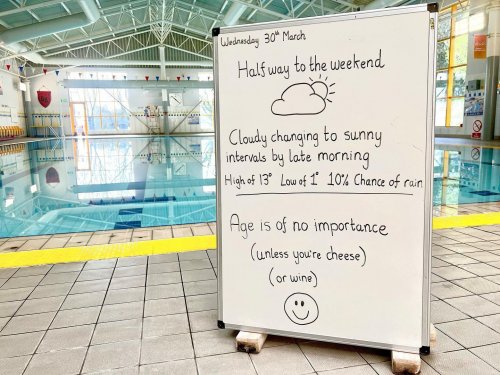 Wednesday 30th March
Halfway to the weekend
Cloudy changing to sunny
intervals by late morning
High of 13° Low of 1° 10% Chance of rain
Age is of no importance
(unless you're cheese)
(or wine)